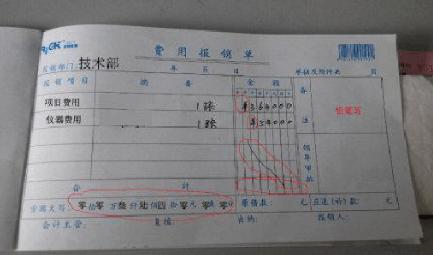 费用报销单
报销部门:技术部 年 月 日 单据及附件共 页
报销项目 摘要 金额 备注
项目费用 1张 ¥364000
铅笔写
仪器费用 1张
领导审批
合计
零拾零万叁仟陆佰四拾零元零角零分 原借款: 元 应退(补)款: 元
会计主管: 复核: 出纳: 报销人: